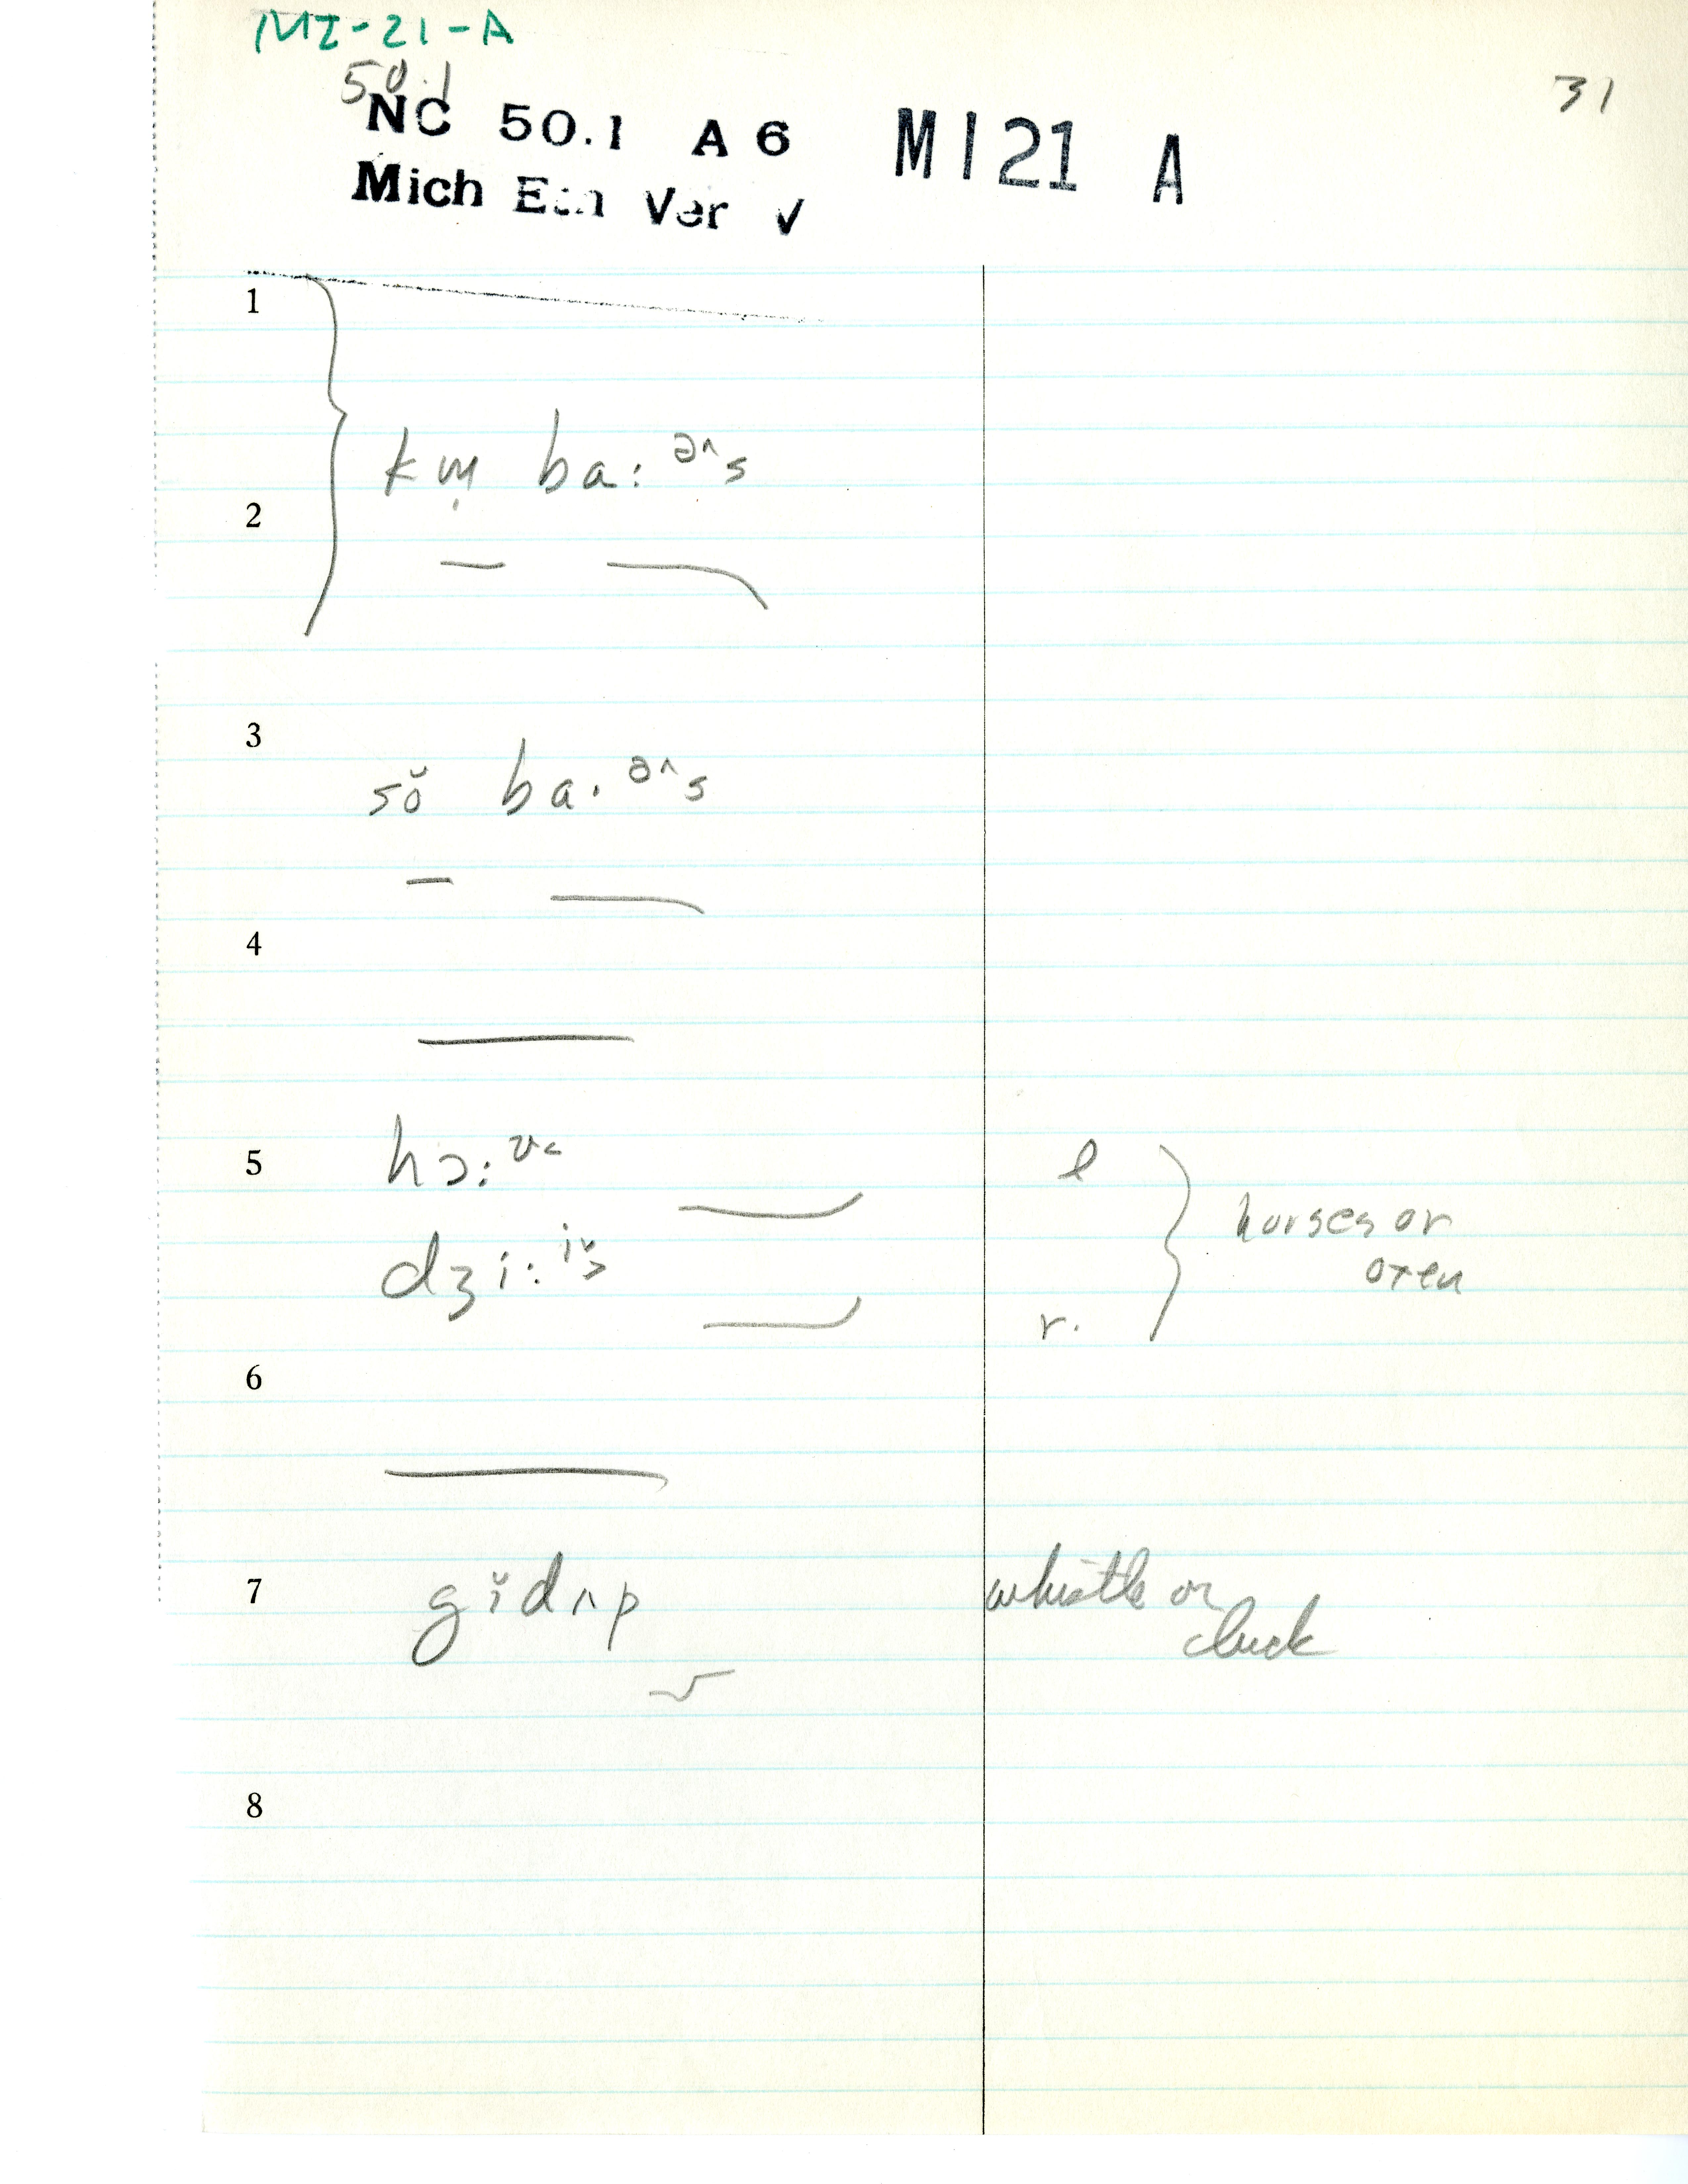 MI-21-A
50.1
31
NC 50.1 A 6 MI21 A
Mich Eth Ver ✓
1
km̩ ba:ᵊ^s
2
3
sŏ ba·ᵊ^s
4
5 hɔ:ᶷ˂ l
horses or
dʒi:ⁱ˅˃ oxen
r.
6
7 gĭdʌp whistle or
cluck
8